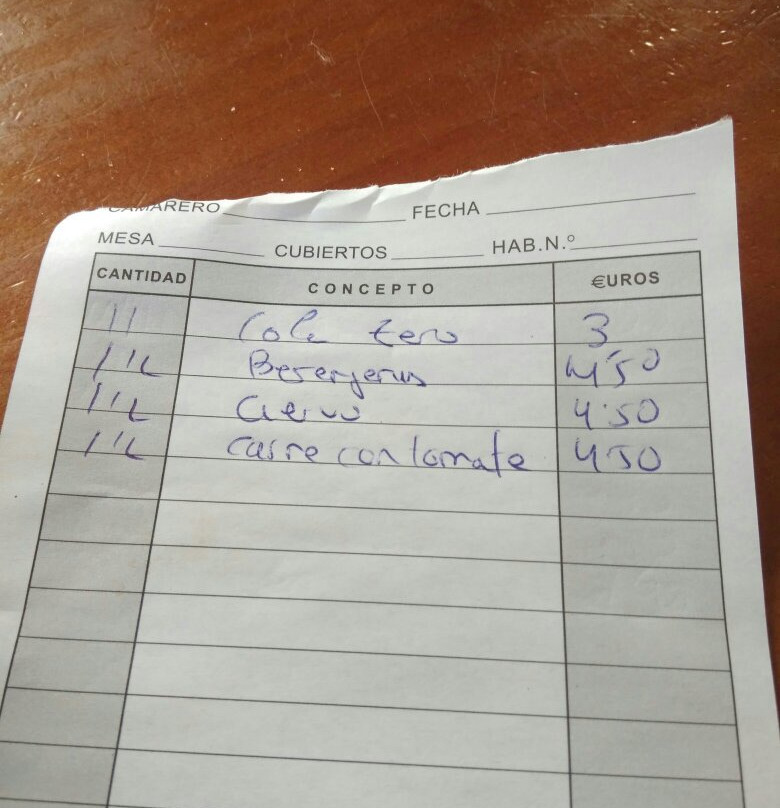 CAMARERO FECHA
MESA CUBIERTOS HAB.N.º
CANTIDAD CONCEPTO €UROS
11 Cola zero 3
1'2 Berenjenas 4'50
1'2 Ciervo 4'50
1'2 carne con tomate 4'50